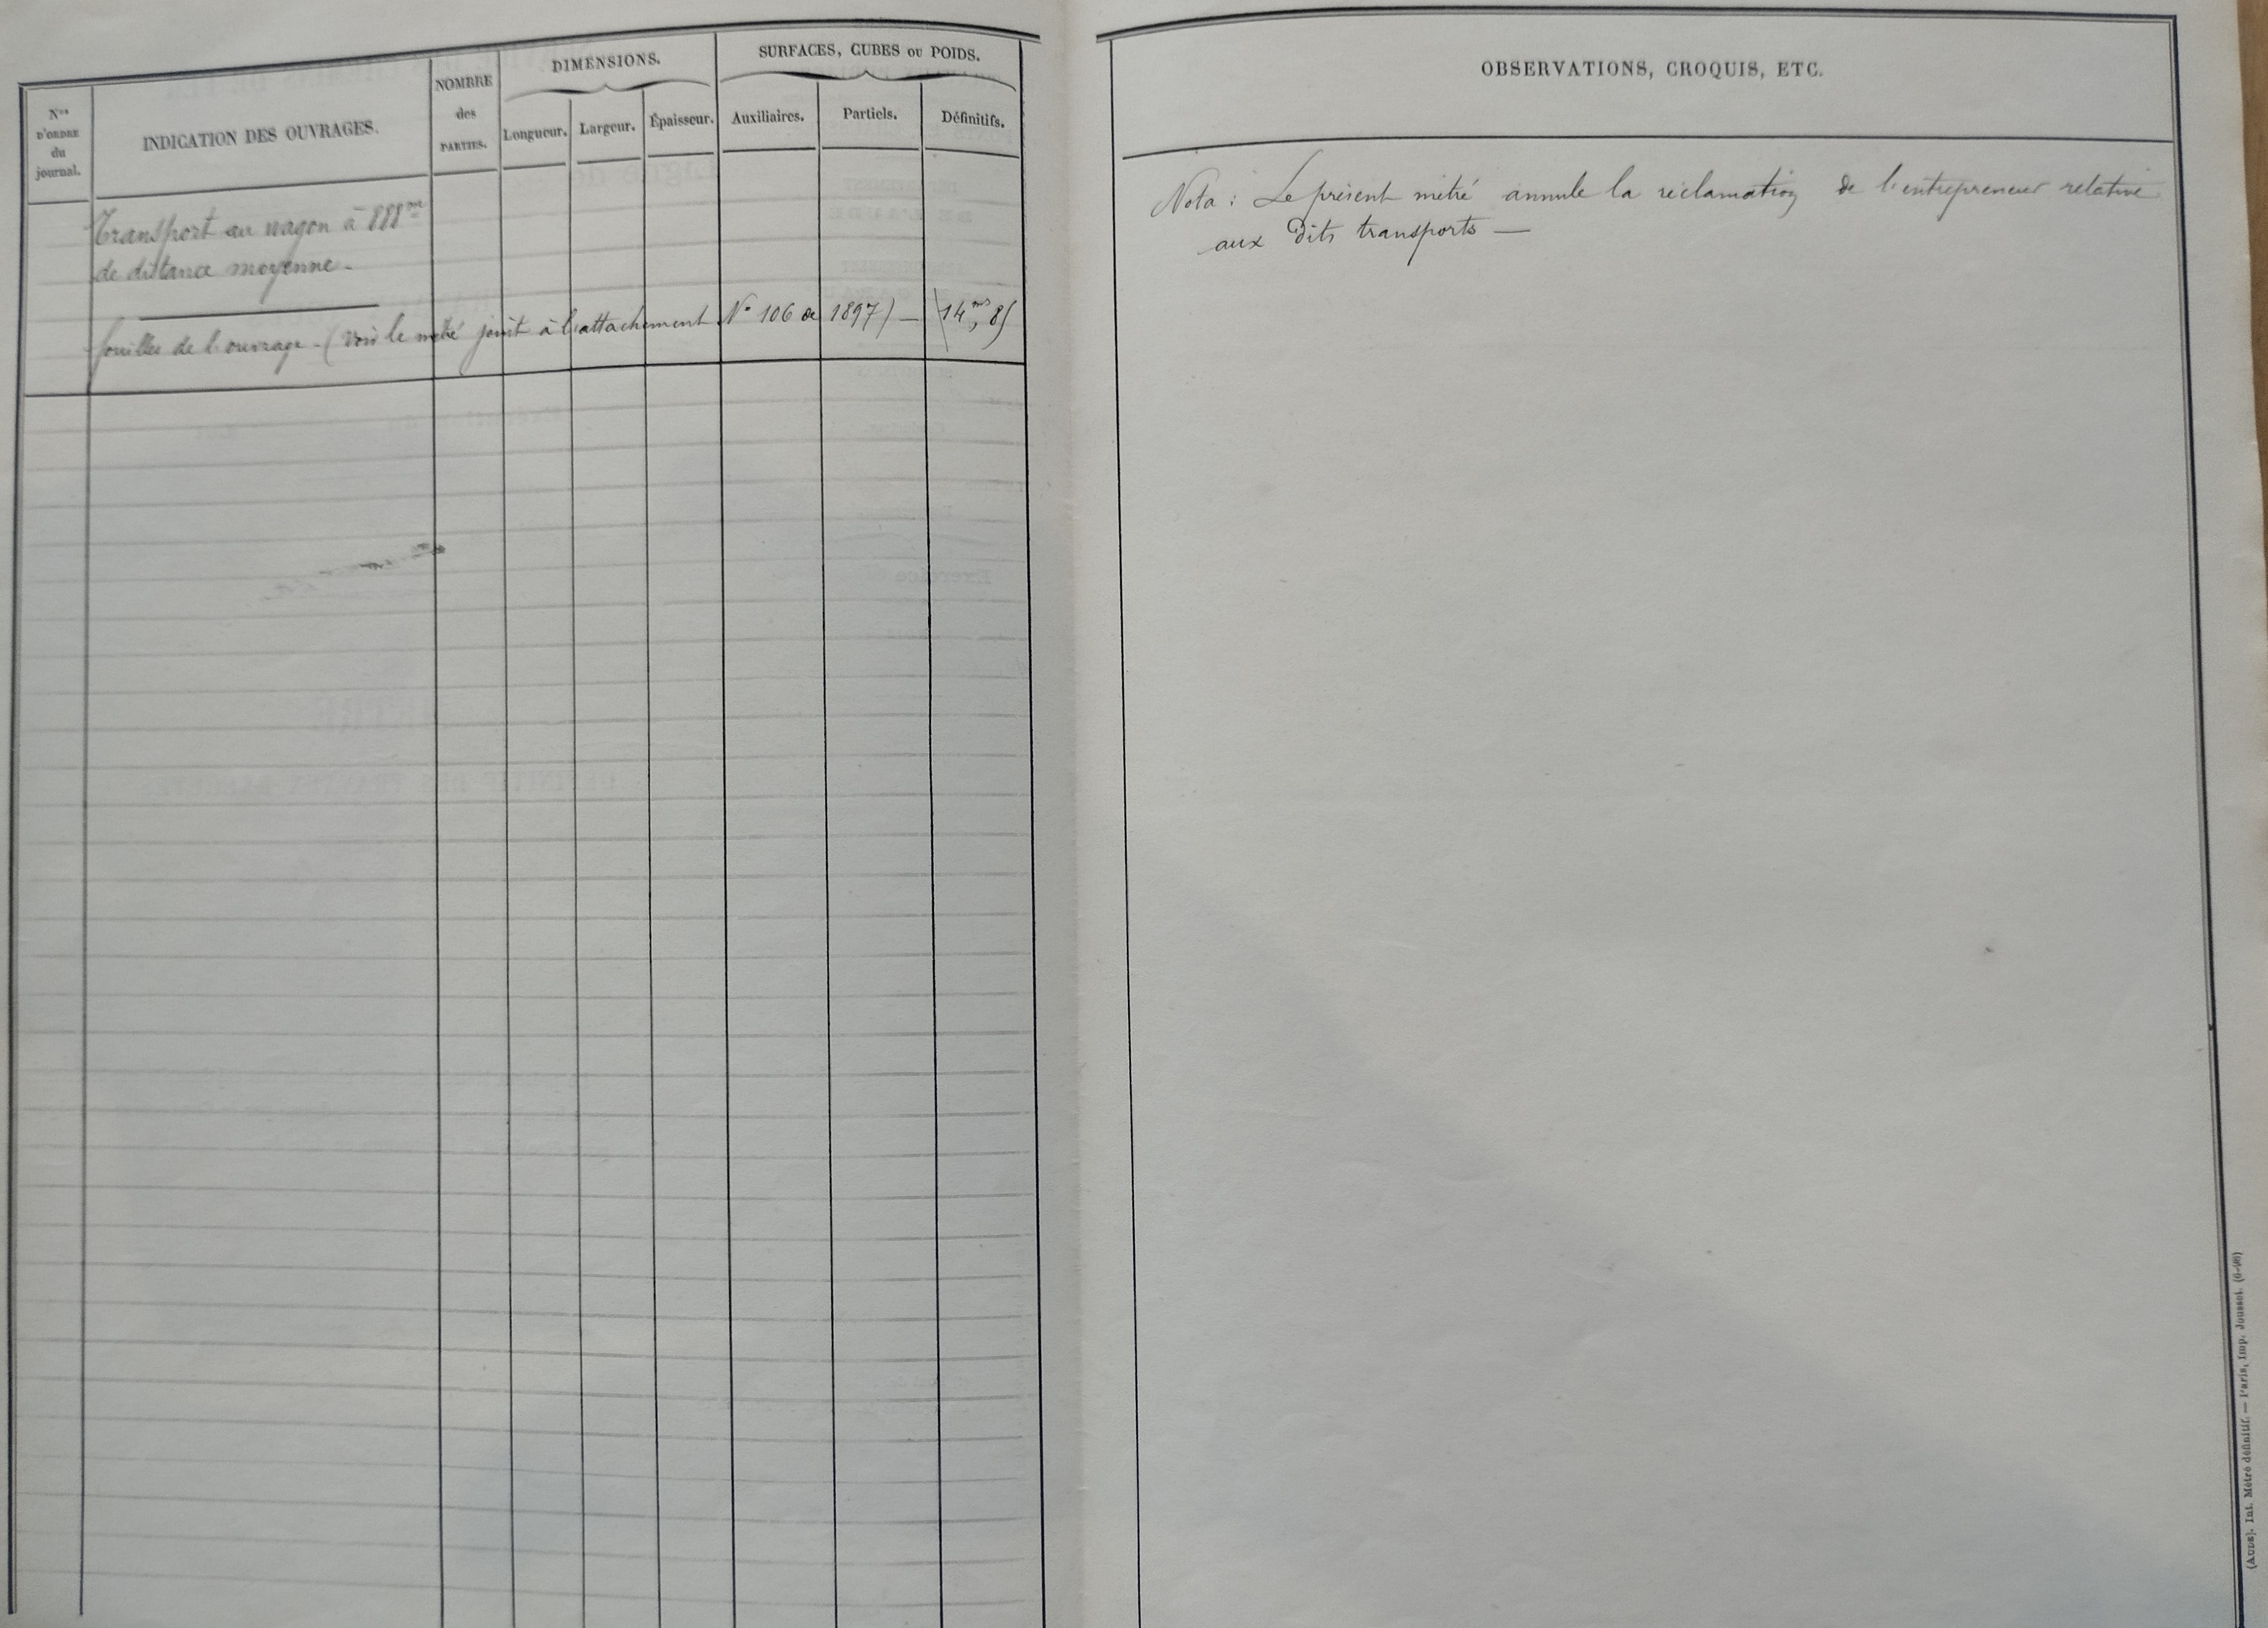 Nos
D'ORDRE
du
journal.
INDICATION DES OUVRAGES.
NOMBRE
des
PARTIES.
DIMENSIONS.
Longueur. Largeur. Épaisseur.
SURFACES, CUBES OU POIDS.
Auxiliaires. Partiels. Définitifs.
Transport au wagon à 888m
de distance moyenne -
fouilles de l'ouvrage - (voir le métré joint à l'attachement N° 106 de 1897) — 14m3, 85
OBSERVATIONS, CROQUIS, ETC.
Nota : Le présent métré annule la réclamation de l'entrepreneur relative
aux dits transports —
(AUDE). Int. Métré définitif. — Paris, Imp. Jousset. (6-96)